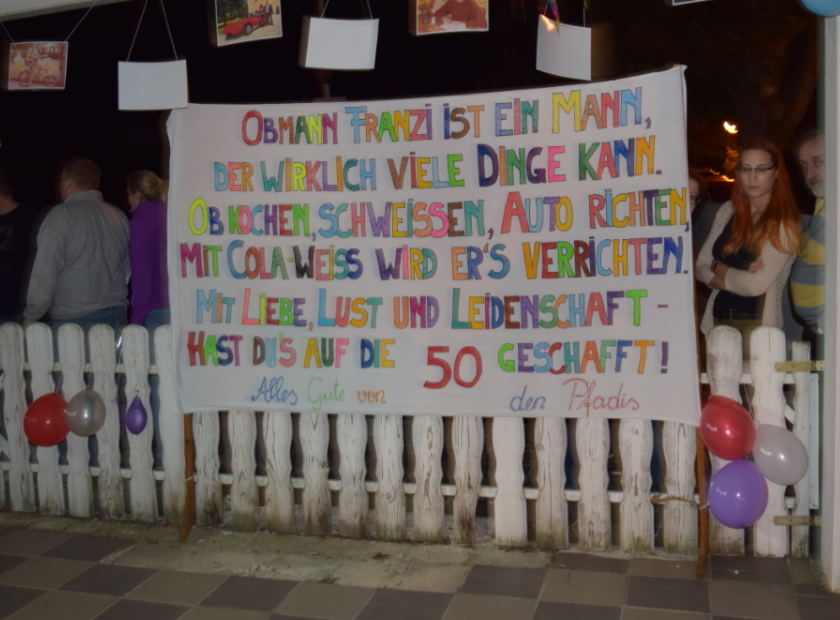 OBMANN FRANZI IST EIN MANN,
DER WIRKLICH VIELE DINGE KANN.
OB KOCHEN, SCHWEISSEN, AUTO RICHTEN,
MIT COLA-WEISS WIRD ER'S VERRICHTEN.
MIT LIEBE, LUST UND LEIDENSCHAFT -
HAST DU'S AUF DIE 50 GESCHAFFT!
Alles Gute von den Pfadis